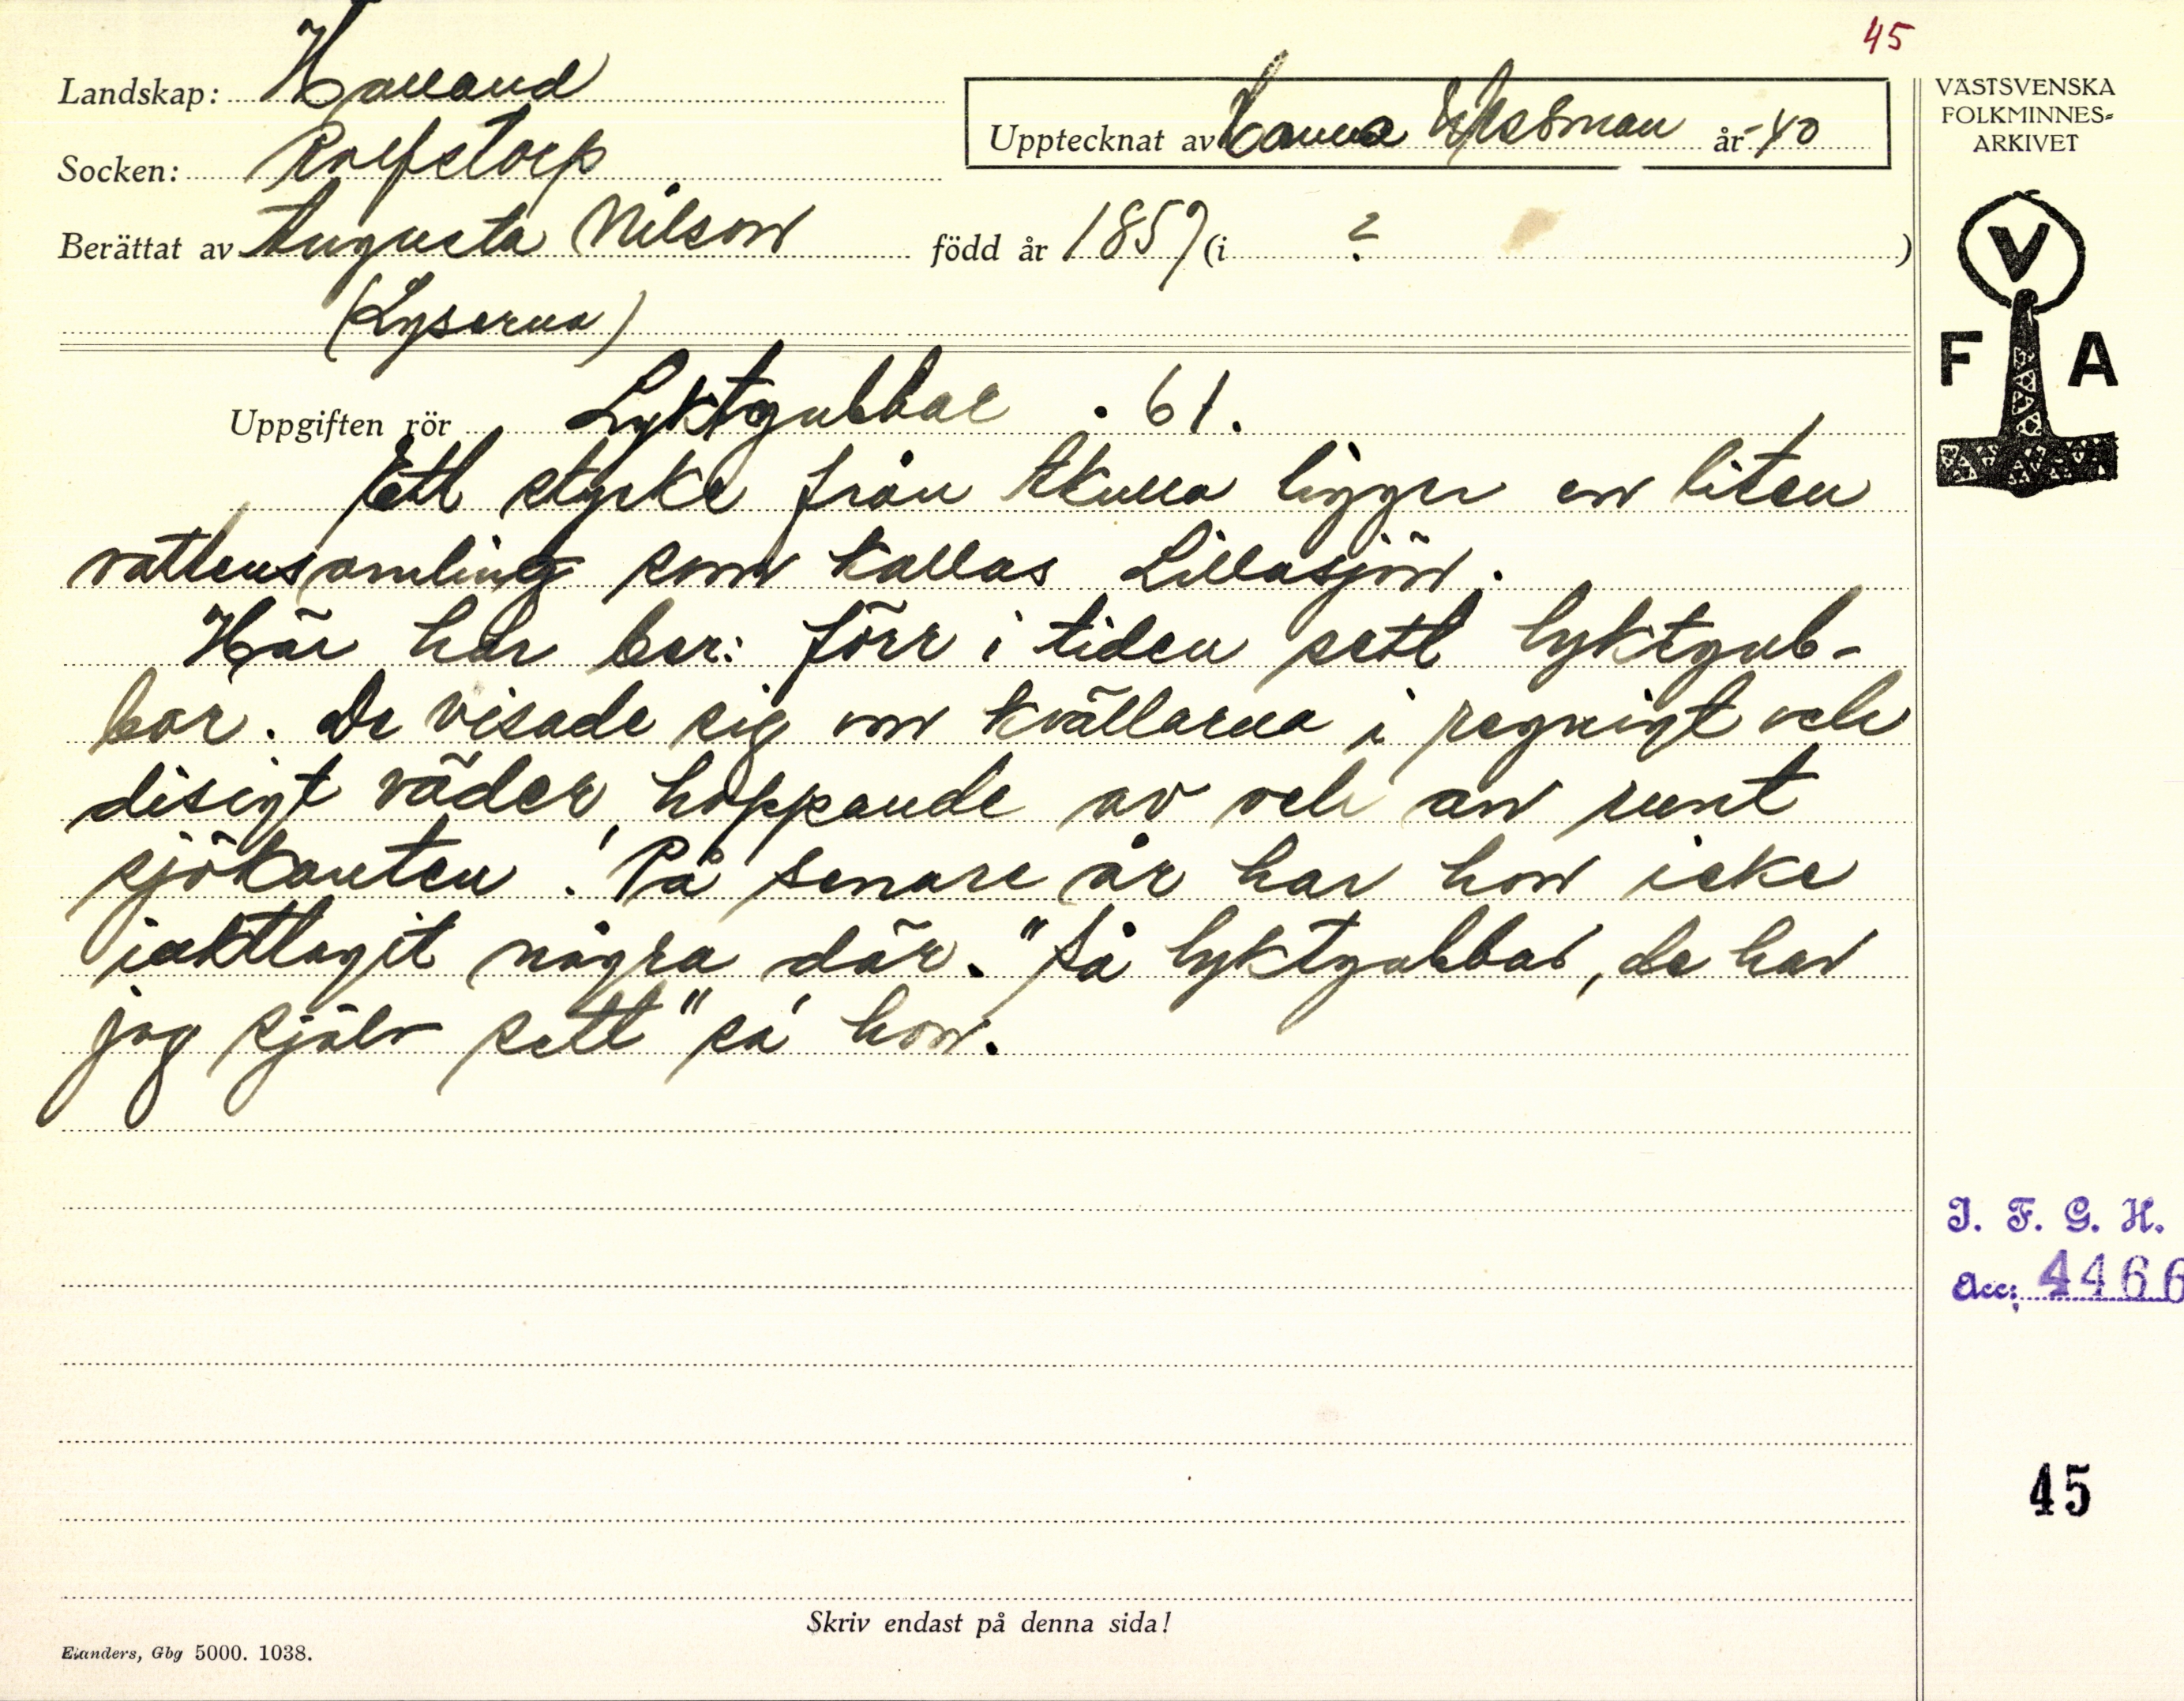 45
Landskap: Halland
Socken: Rolfstorp
Upptecknat av Hanna år -40
Berättat av Augusta Nilson född år 1857 (i ? )
(Lyserna)
VÄSTSVENSKA
FOLKMINNES=
ARKIVET
V
F A
Uppgiften rör Lyktgubbar . 61.
Ett stycke från Åkulla ligger en liten
vattensamling som kallas Lillasjön.
Här har ber: förr i tiden sett lyktgub-
bar. De visade sig om kvällarna i regnigt och
disigt väder, hoppande av och an runt
sjökanten. På senare år har hon icke
iakttagit några där. "Så lyktgubbar, de har
jag själv sett" sa hon.
I. F. G. H.
Acc: 4466
45
Skriv endast på denna sida!
Elanders, Gbg 5000. 1038.